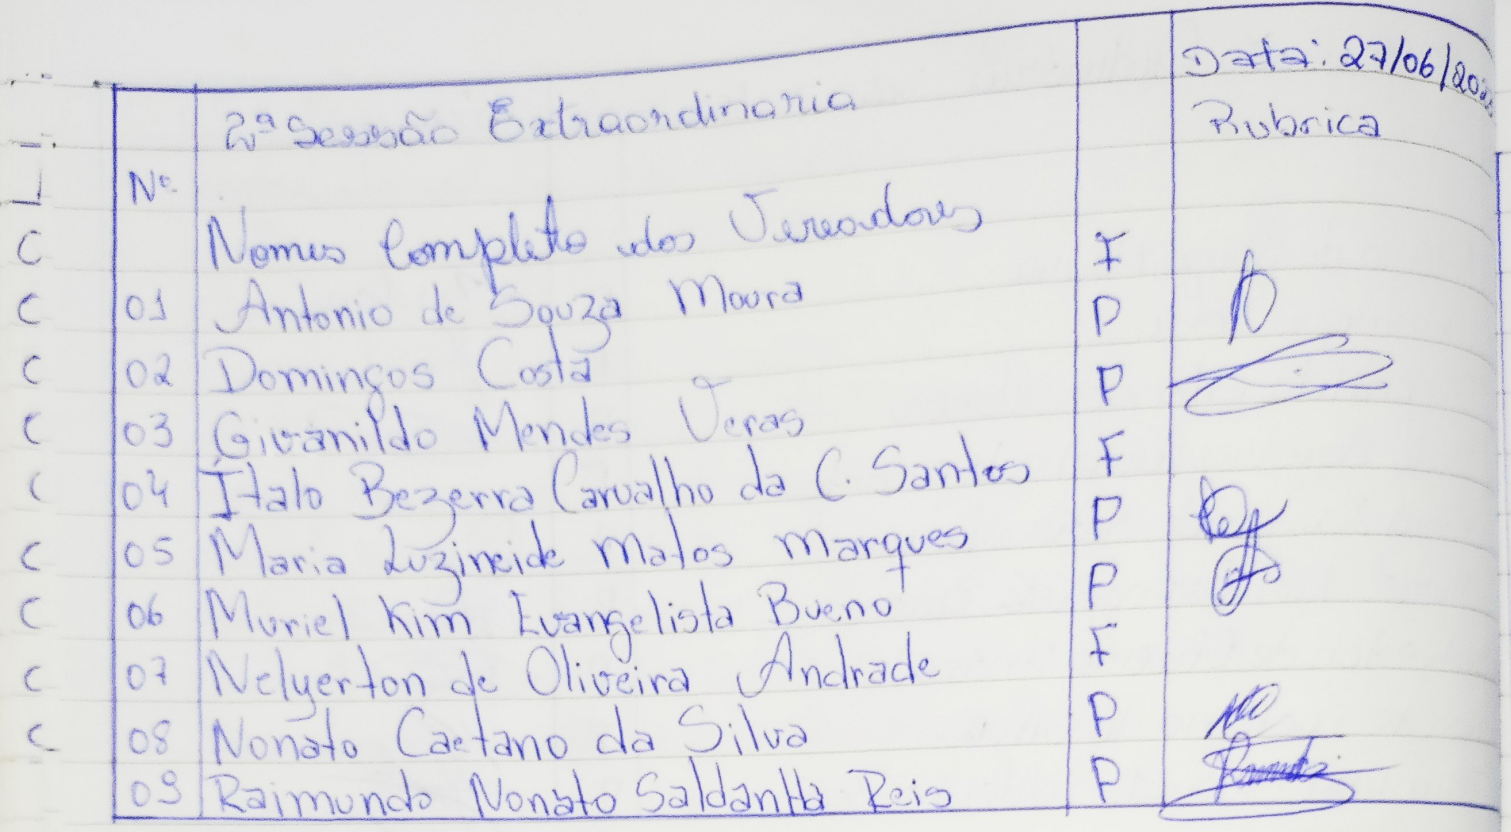 Data: 27/06/202
2ª Sessão Extraordinaria
Rubrica
Nº
Nomes Completo dos Vereadores
01 Antonio de Souza Moura F
02 Domingos Costa P
03 Givanildo Mendes Veras P
04 Ítalo Bezerra Carvalho da C. Santos F
05 Maria Luzineide Matos Marques P
06 Muriel Kim Evangelista Bueno P
07 Nelyerton de Oliveira Andrade F
08 Nonato Caetano da Silva P
09 Raimundo Nonato Saldanha Reis P